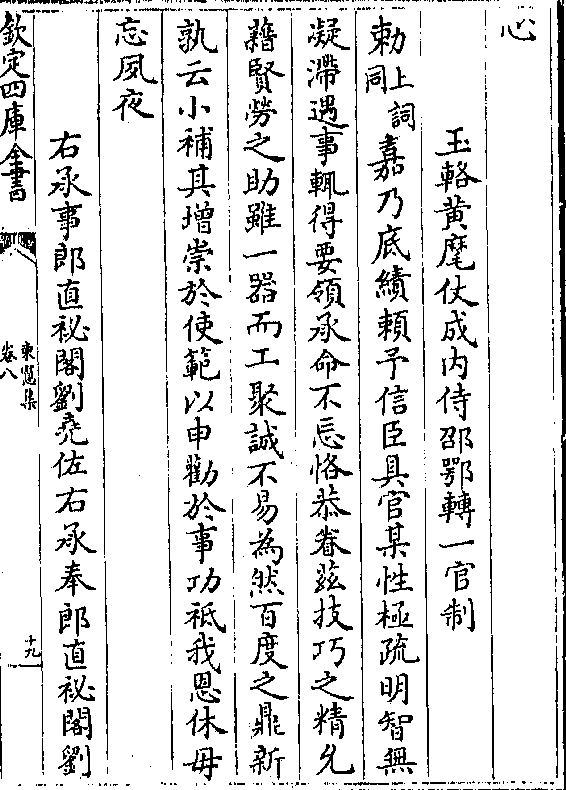 心
玉輅黄麾仗成内侍邵鄂轉一官制
勅上詞同嘉乃底績賴予信臣具官某性極疏明智無
凝滯遇事輒得要領承命不忘恪恭眷兹技巧之精允
藉賢勞之助雖一器而工聚誠不易為然百度之鼎新
孰云小補其增崇於使範以申勸於事功祗我恩休毋
忘夙夜
右承事郎直祕閣劉堯佐右承奉郎直祕閣劉
欽定四庫全書
東窻集
卷八
十九